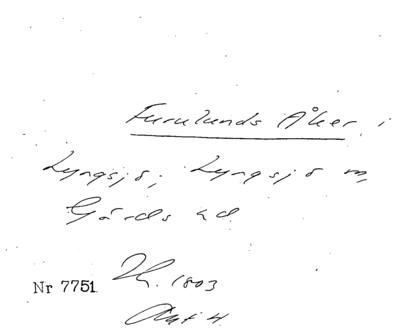 Furulunds Åker i
Lyngsjö, Lyngsjö
Gärds hd
Nr 7751. 1803